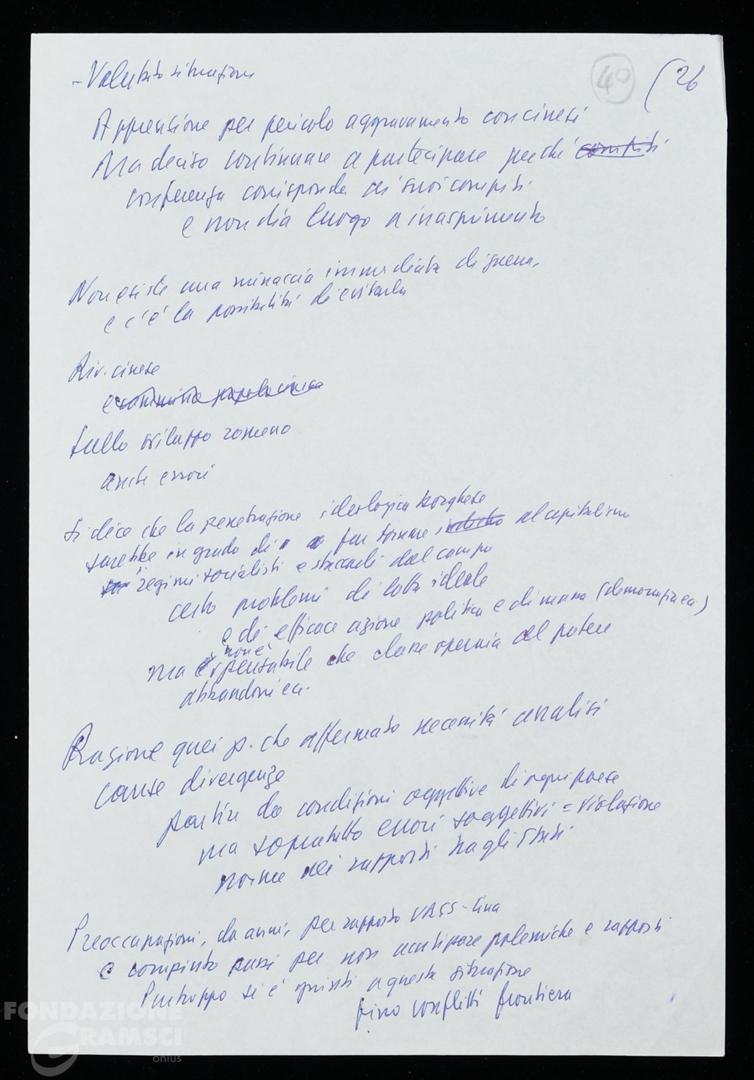 40 (26
- Valutato situazione
Apprensione per pericolo aggravamento con cinesi
Ma deciso continuare a partecipare perché compiti
conferenza corrisponda ai suoi compiti
e non dia luogo a inasprimento
Non esiste una minaccia immediata di guerra,
e c'è la possibilità di evitarla
Riv. cinese
Sullo sviluppo romeno
anche errori
Si dice che la penetrazione ideologica borghese
sarebbe in grado di far tornare al capitalismo
regimi socialisti e staccarli dal campo
certo problemi di lotta ideale
e di efficace azione politica e di massa (democratica)
ma non è pensabile che classe operaia al potere
abbandoni ca.
Ragione quei p. che affermato necessità analisi
cause divergenze
partire da condizioni oggettive di ogni paese
ma sopratutto errori soggettivi = violazione
norme nei rapporti tra gli Stati
Preoccupazioni, da anni, per rapporto URSS-Cina
e compiuto passi per non acutizzare polemiche e rapporti
Purtroppo si è giunti a questa situazione
fino conflitti frontiera
FONDAZIONE
GRAMSCI
onlus